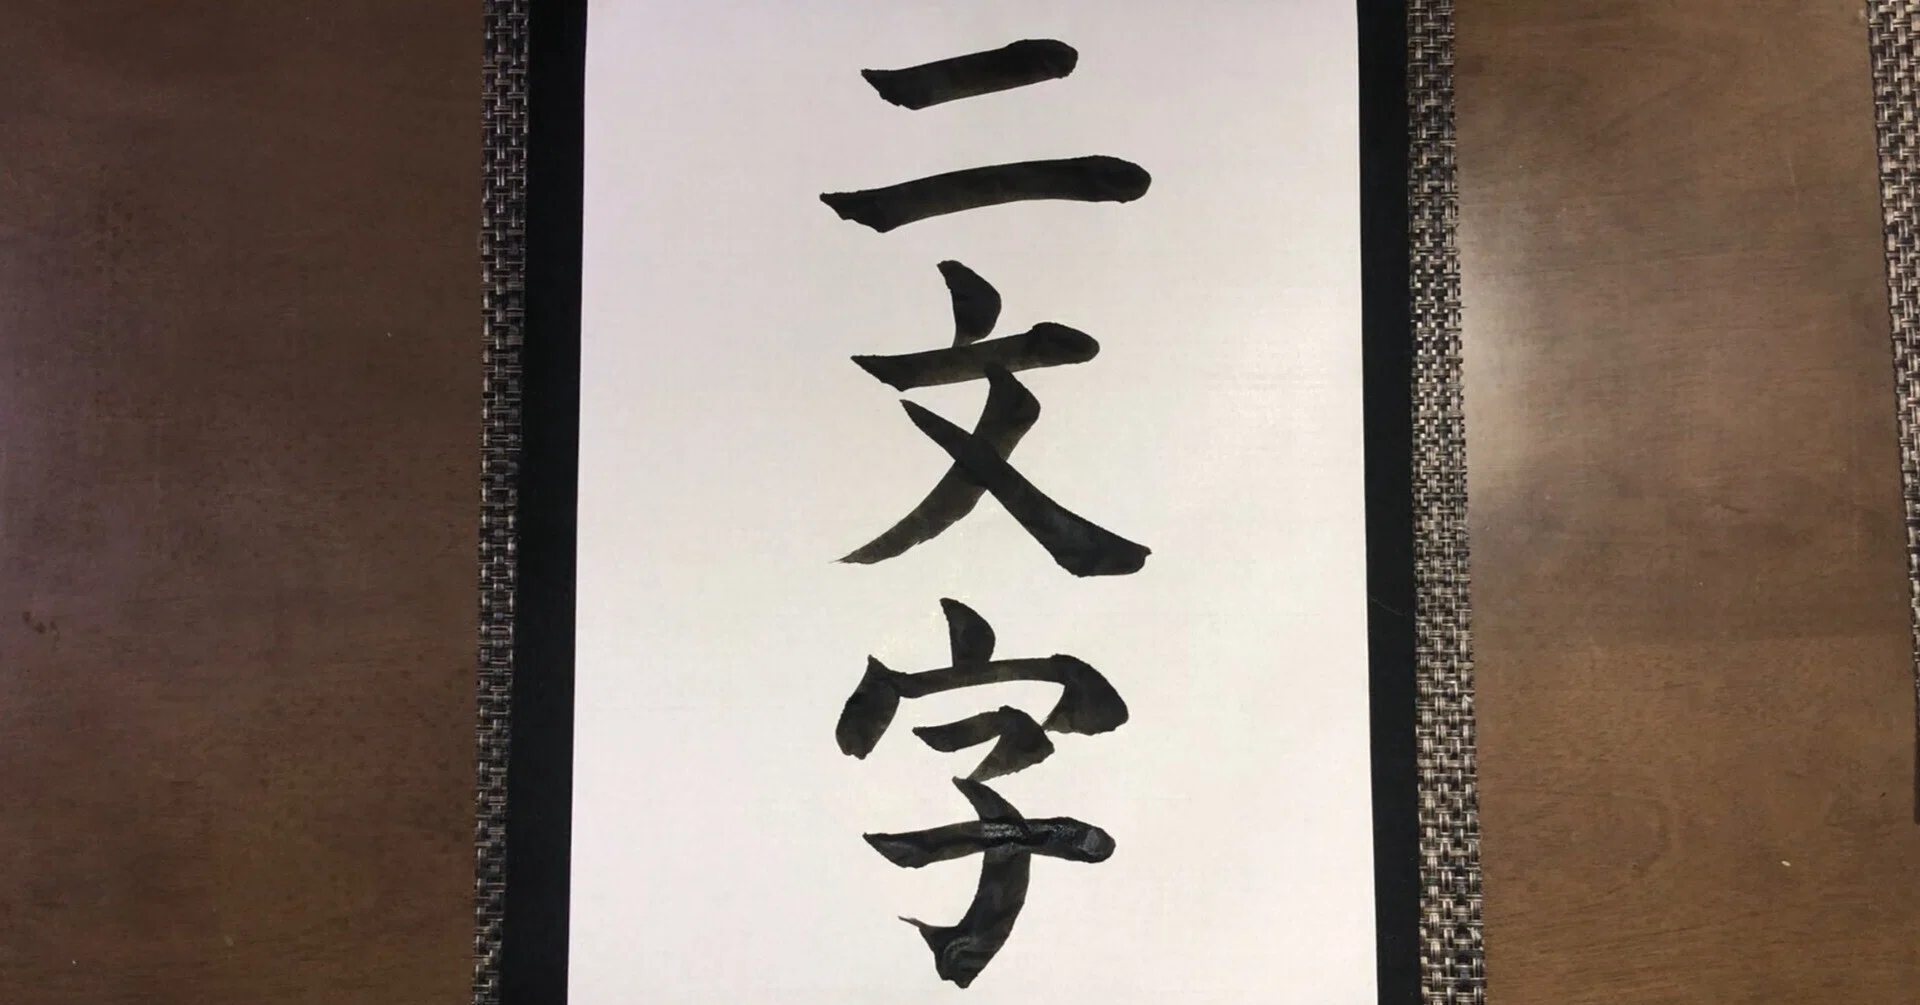 二文字